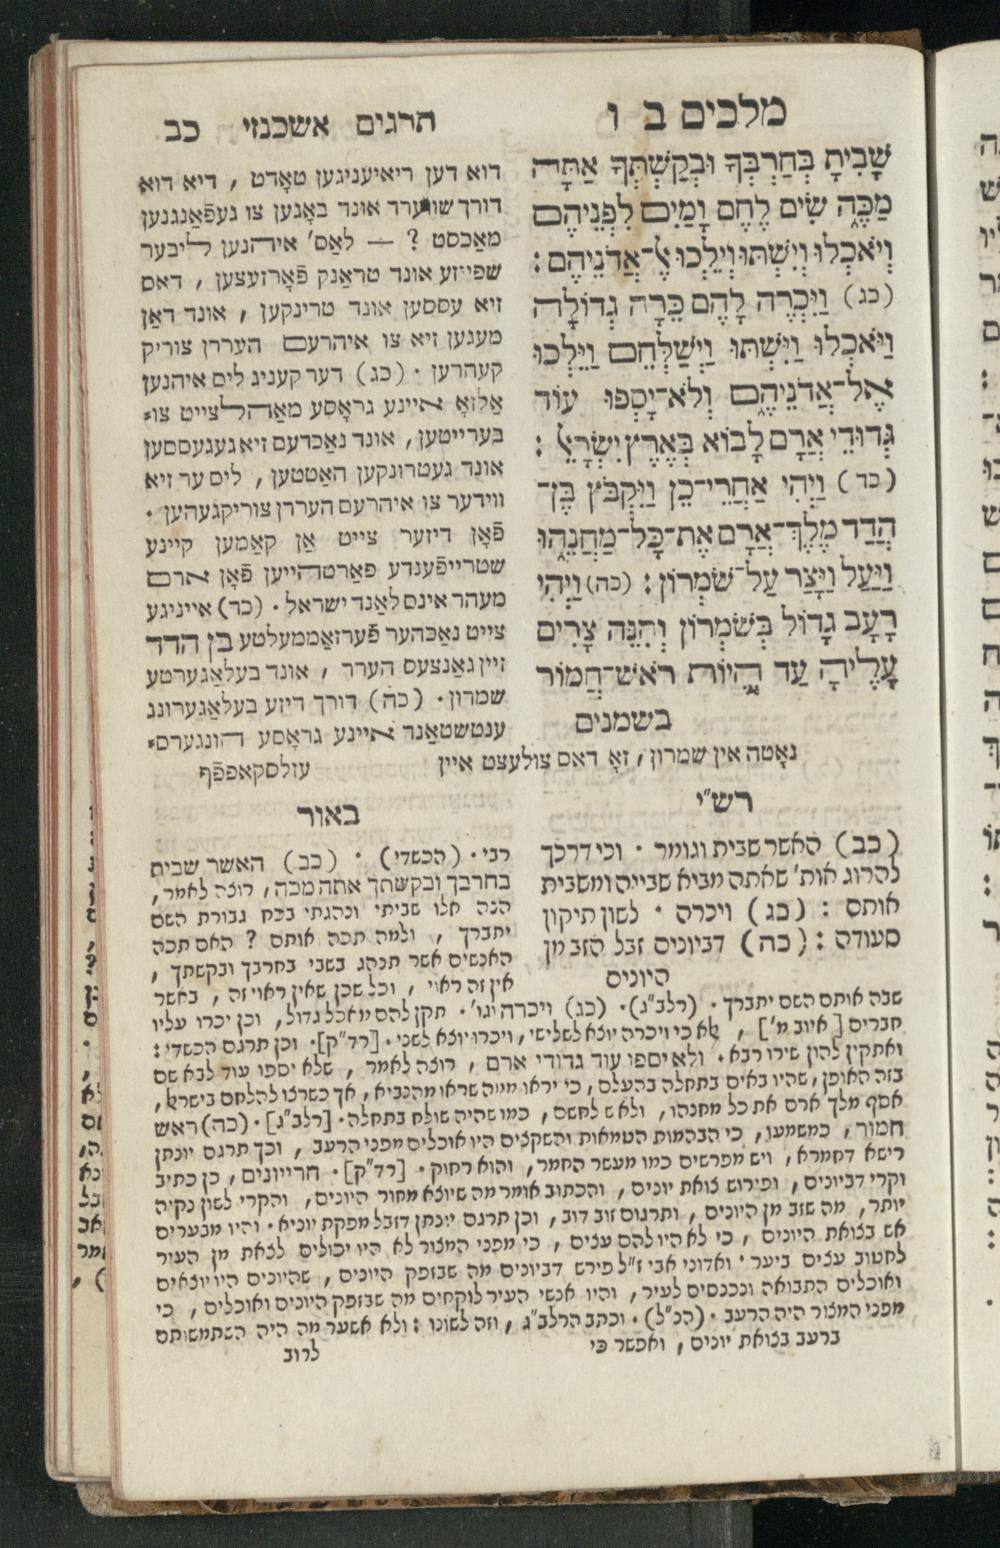 מלכים ב ו
שָׁבִיתָ בְּחַרְבְּךָ וּבְקַשְׁתְּךָ אַתָּה
מַכֶּה שִׂים לֶחֶם וָמַיִם לִפְנֵיהֶם
וְיֹאכְלוּ וְיִשְׁתּוּ וְיֵלְכוּ אֶל־אֲדֹנֵיהֶם :
(כג) וַיִּכְרֶה לָהֶם כֵּרָה גְדוֹלָה
וַיֹּאכְלוּ וַיִּשְׁתּוּ וַיְשַׁלְּחֵם וַיֵּלְכוּ
אֶל־אֲדֹנֵיהֶם וְלֹא־יָסְפוּ עוֹד
גְּדוּדֵי אֲרָם לָבוֹא בְּאֶרֶץ יִשְׂרָאֵל :
(כד) וַיְהִי אַחֲרֵי־כֵן וַיִּקְבֹּץ בֶּן־
הֲדַד מֶלֶךְ־אֲרָם אֶת־כָּל־מַחֲנֵהוּ
וַיַּעַל וַיָּצַר עַל־שֹׁמְרוֹן : (כה) וַיְהִי
רָעָב גָּדוֹל בְּשֹׁמְרוֹן וְהִנֵּה צָרִים
עָלֶיהָ עַד הֱיוֹת רֹאשׁ־חֲמוֹר
בשמנים
תרגום אשכנזי כב
דוא דען ריאיעניגען טאָדט , דיא דוא
דורך שווערד אונד באָגען צו געפֿאַנגנען
מאַכסט ? — לאַס' איהנען ליבער
שפייזע אונד טראַנק פֿאָרזעצען , דאס
זיא עססען אונד טרינקען , אונד דאַן
מעגען זיא צו איהרעם העררן צוריק
קעהרען . (כג) דער קעניג ליס איהנען
אַלזאָ איינע גראָסע מאַהלצייט צו=
בערייטען , אונד נאַכדעם זיא געגעססען
אונד געטרונקען האַטטען , ליס ער זיא
ווידער צו איהרעם העררן צוריקגעהען .
פֿאָן דיזער צייט אַן קאַמען קיינע
שטרייפֿענדע פארטהייען פֿאָן ארם
מעהר אינס לאַנד ישראל . (כד) אייניגע
צייט נאַכהער פֿערזאַממעלטע בן הדד
זיין גאַנצעס העער , אונד בעלאַגערטע
שמרון . (כה) דורך דיזע בעלאַגערונג
ענטשטאַנד איינע גראָסע הונגערס=
נאָטה אין שמרון , זאָ דאס צולעצט איין
עזלסקאפפֿף
רש"י
(כב) האשר שבית וגומר . וכי דרכך
להרוג אות' שאתה מביא שבייה ומשבית
אותם : (כג) ויכרה . לשון תיקון
סעודה : (כה) דביונים זבל הזב מן
היונים
באור
רבי . (הכשדי) . (כב) האשר שבית
בחרבך ובקשתך אתה מכה , רוצה לאמר ,
הנה אלו שביתי ונהגתי בכח גבורת השם
יתברך , ולמה תכה אותם ? האם תכה
האנשים אשר תנהג בשבי בחרבך ובקשתך ,
אין זה ראוי , וכל שכן שאין ראוי זה , באשר
שבה אותם השם יתברך . (רלב"ג) . (כג) ויכרה וגו' . תקן להם מאכל גדול , וכן יכרו עליו
חברים [איוב מ'] , לא כי ויכרה יוצא לשלישי , ויכרו יוצא לשני . [רד"ק] . וכן תרגם הכשדי :
ואתקין להון שירו רבא . ולא יספו עוד גדודי ארם , רוצה לאמר , שלא יספו עוד לבא שם
בזה האופן , שהיו באים בתחלה בהעלם , כי יראו ממה שראו מהנביא , אך כשרצו להלחם בישראל ,
אסף מלך ארם את כל מחנהו , ולא ש לחשם , כמו שהיה שולח בתחלה . [רלב"ג] . (כה) ראש
חמור , כמשמעו , כי הבהמות הטמאות והשקצים היו אוכלים מפני הרעב , וכך תרגם יונתן
רישא דחמרא , ויש מפרשים כמו מעשר החמר , והוא רחוק . [רד"ק] . חריייונים , כן כתיב
וקרי דביונים , ופירוש צואת יונים , והכתוב אומר מה שיוצא מחור היונים , והקרי לשון נקיה
יותר , מה שזב מן היונים , ותרגום זוב דוב , וכן תרגם יונתן דזבל מפקת יוניא . והיו מבערים
אש בצואת היונים , כי לא היו להם עצים , כי מפני המצור לא היו יכולים לצאת מן העיר
לחטוב עצים ביער . ואדוני אבי ז"ל פירש דביונים מה שבזפק היונים , שהיונים היו יוצאים
ואוכלים התבואה ונכנסים לעיר , והיו אנשי העיר לוקחים מה שבזפק היונים ואוכלים , כי
מפני המצור היה הרעב . (הנ"ל) . וכתב הרלב"ג , וזה לשונו : ולא אשער מה היה השתמשותם
ברעב בצואת יונים , ואפשר כי
לרוב